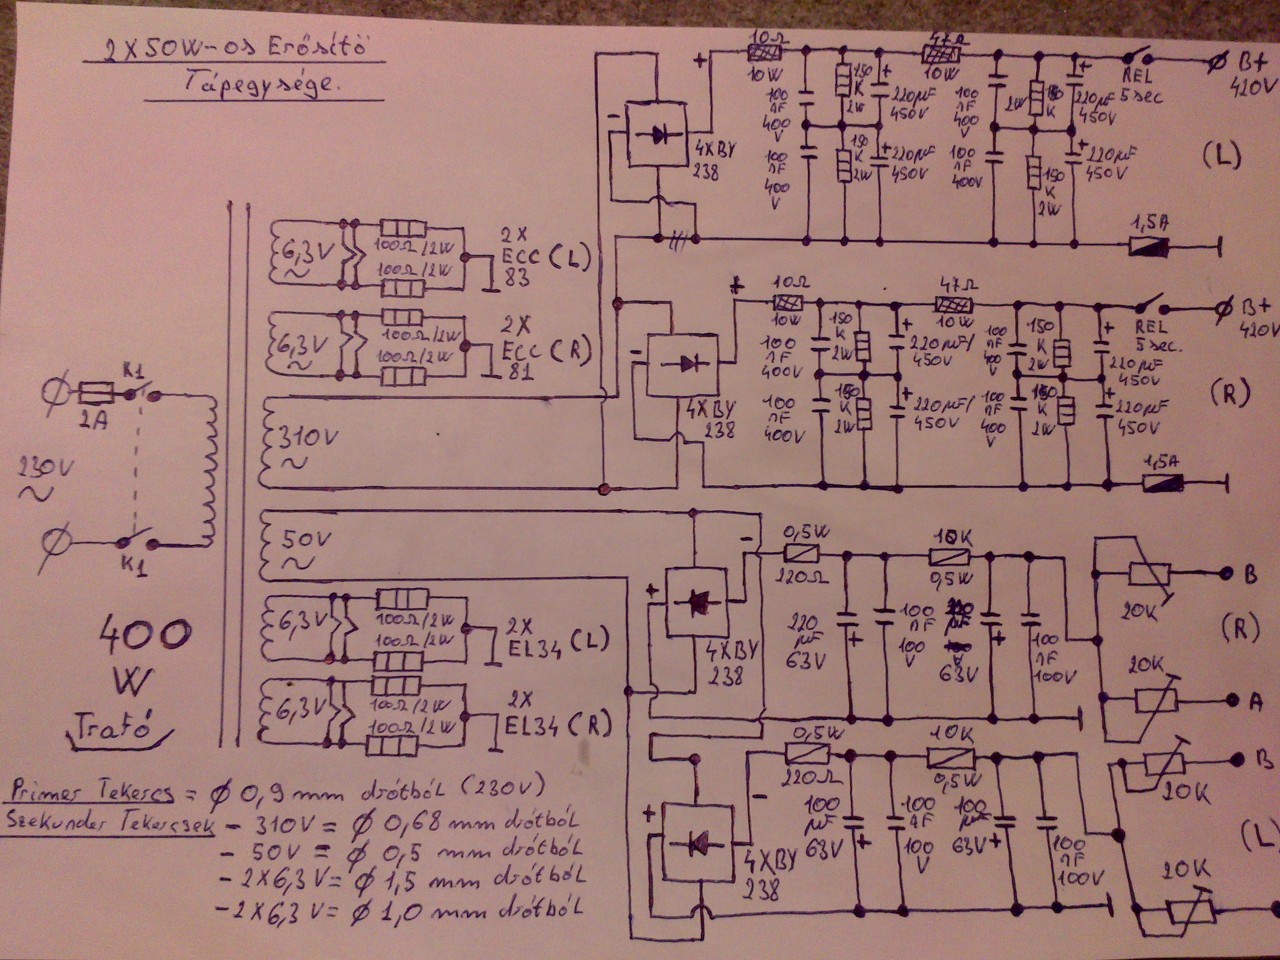 2X50W-os Erősítő
Tápegysége.
10Ω
10W
47Ω
10W
+
-
4XBY
238
100
nF
400
V
150
K
2W
+
220µF
450V
100
nF
400
V
150
K
2W
+
220µF
450V
100
nF
400
V
2W
150
K
+
220µF
450V
100
nF
400V
150
K
2W
+
220µF
450V
REL
5sec
B+
420V
(L)
1,5A
6,3V
~
100Ω/2W
100Ω/2W
2X
ECC (L)
83
6,3V
~
100Ω/2W
100Ω/2W
2X
ECC (R)
81
+
-
4XBY
238
10Ω
10W
47Ω
10W
100
nF
400V
150
K
2W
+
220µF/
450V
100
nF
400V
150
K
2W
+
220µF/
450V
100
nF
400
V
150
K
2W
+
220µF
450V
100
nF
400
V
150
K
2W
+
220µF
450V
REL
5sec.
B+
420V
(R)
1,5A
K1
2A
230V
~
K1
310V
~
50V
~
400
W
Trafó
6,3V
~
100Ω/2W
100Ω/2W
2X
EL34 (L)
6,3V
~
100Ω/2W
100Ω/2W
2X
EL34 (R)
+
-
4XBY
238
0,5W
220Ω
10K
0,5W
220
µF
63V
+
100
nF
100
V
+
63V
100
nF
100V
20K
B
(R)
20K
A
+
-
4XBY
238
0,5W
220Ω
10K
0,5W
100
µF
63V
+
100
nF
100
V
100
µF
63V
+
100
nF
100V
B
20K
(L)
20K
Primer Tekercs = φ 0,9 mm drótból (230V)
Szekunder Tekercsek - 310V = φ 0,68 mm drótból
- 50V = φ 0,5 mm drótból
- 2X6,3V = φ 1,5 mm drótból
- 2X6,3V = φ 1,0 mm drótból